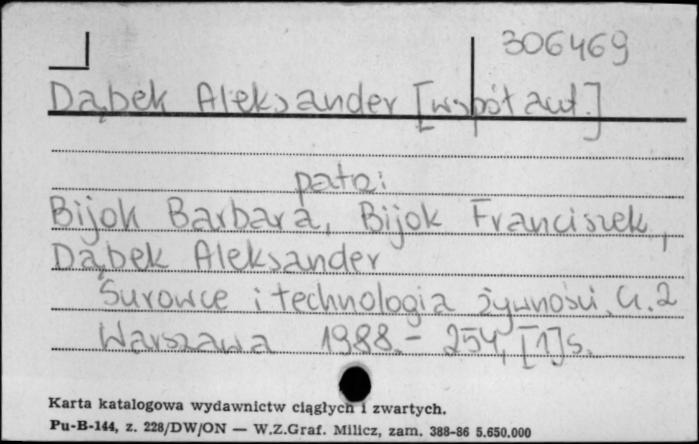 306469
Dąbek Aleksander [współaut.]
patrz:
Bijok Barbara, Bijok Franciszek,
Dąbek Aleksander
Surowce i technologia żywności. Cz. 2
Warszawa 1988. - 254, [1] s.
Karta katalogowa wydawnictw ciągłych i zwartych.
Pu-B-144, z. 228/DW/ON — W.Z.Graf. Milicz, zam. 388-86 5.650.000